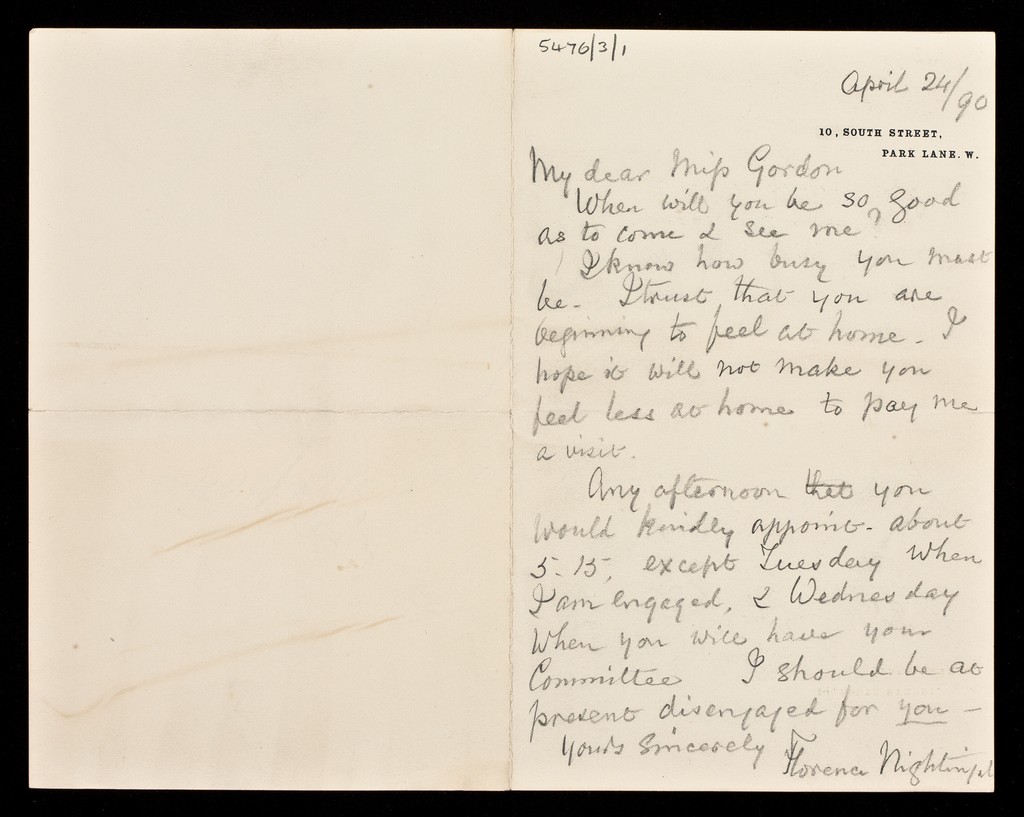 5476/3/1
April 24/90
10, SOUTH STREET,
PARK LANE. W.
My dear Miss Gordon
When will you be so good
as to come & see me?
I know how busy you must
be - I trust that you are
beginning to feel at home - I
hope it will not make you
feel less at home to pay me
a visit.
Any afternoon that you
would kindly appoint - about
5.15, except Tuesday when
I am engaged, & Wednesday
when you will have your
Committee I should be at
present disengaged for you -
Yours sincerely
Florence Nightingale